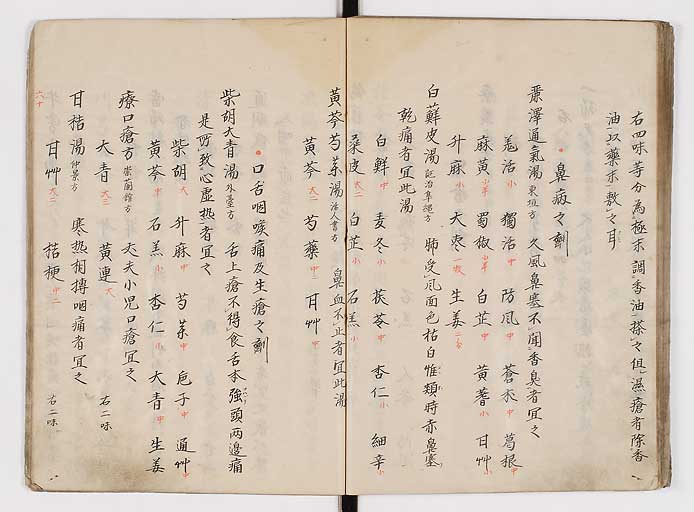 右四味等分為極末調香油一搽之但濕瘡者除香
油以藥末敷之耳
鼻病之劑
麗澤通氣湯 東垣方 久風鼻塞不聞香臭者宜之
羌活小 獨活中 防風中 蒼朮中 葛根中
麻黄小半 蜀椒小半 白芷中 黄蓍小 甘艸小
升麻小 大棗一枚 生姜
白蘚皮湯 肺受風面色枯白頬時赤鼻塞
乾痛者宜此湯
白鮮 麦冬小 茯苓 杏仁小 細辛小
桑皮大二 白芷小 石羔小
黄芩芍薬湯 活人書方 鼻血不止者宜此湯
黄芩大二 芍藥中二 甘艸中
口舌咽喉痛及生瘡之劑
柴胡大青湯 外臺方 舌上瘡不得食舌本強頭兩邉痛
是所致心虚热者宜之
柴胡大 升麻中 芍薬中 巵子中 通艸中
黄芩中 石羔小 杏仁小 大青小 生姜
療口瘡方 崇蘭館方 丈夫小児口瘡宜之
大青大二 黄連大 右二味
甘桔湯 仲景方 寒热相搏咽痛者宜之
甘艸大二 桔梗中二 右二味
六十